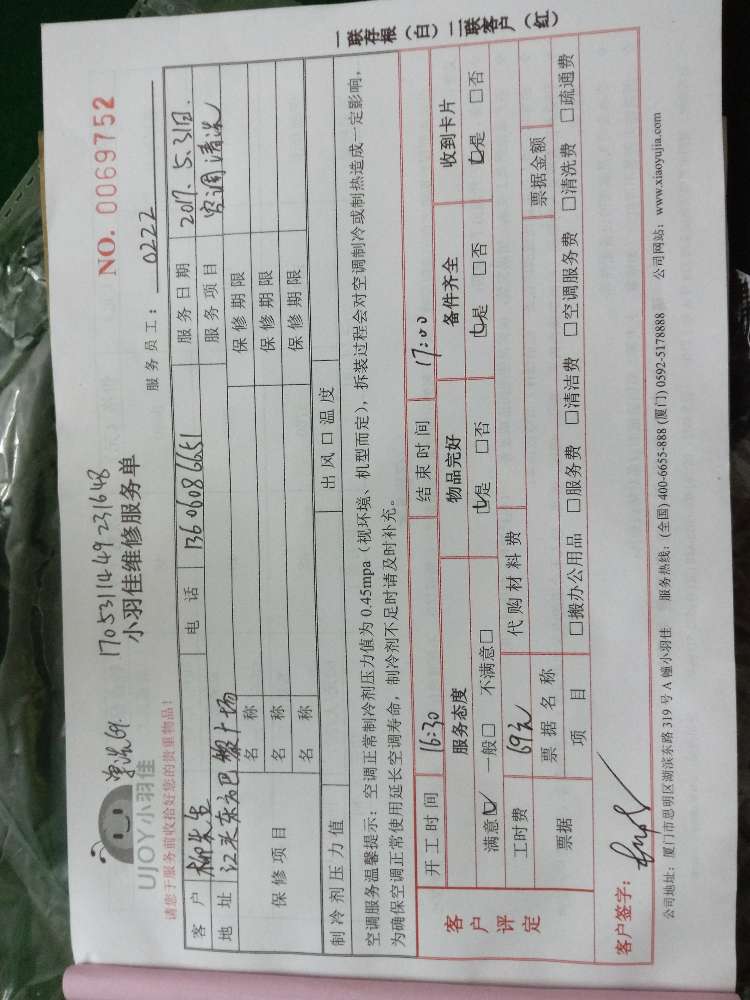 一联存根（白）二联客户（红）
NO. 0069752
170531144923​1648
单洗69.
UJOY小羽佳
小羽佳维修服务单
服务员工： 0222
请您于服务前收拾好您的贵重物品！
客 户 柳先生 电 话 13606086651 服务日期 2017.5.31日.
地 址 江头东方巴黎广场 服务项目 空调清洗
保修项目 名 称 保修期限
名 称 保修期限
名 称 保修期限
制冷剂压力值 出风口温度
空调服务温馨提示：空调正常制冷剂压力值为 0.45mpa（视环境、机型而定），拆装过程会对空调制冷或制热造成一定影响，
为确保空调正常使用延长空调寿命，制冷剂不足时请及时补充。
客户评定
开工时间 16:30 结束时间 17:00
服务态度 物品完好 备件齐全 收到卡片
满意☑ 一般□ 不满意□ ☑是 □否 ☑是 □否 ☑是 □否
工时费 69元 代购材料费
票据 票据名称 票据金额
项 目 □搬办公用品 □服务费 □清洁费 □空调服务费 □清洗费 □疏通费
客户签字：
公司地址：厦门市思明区湖滨东路 319 号 A 幢小羽佳 服务热线：(全国) 400-6655-888 (厦门) 0592-5178888 公司网站：www.xiaoyujia.com